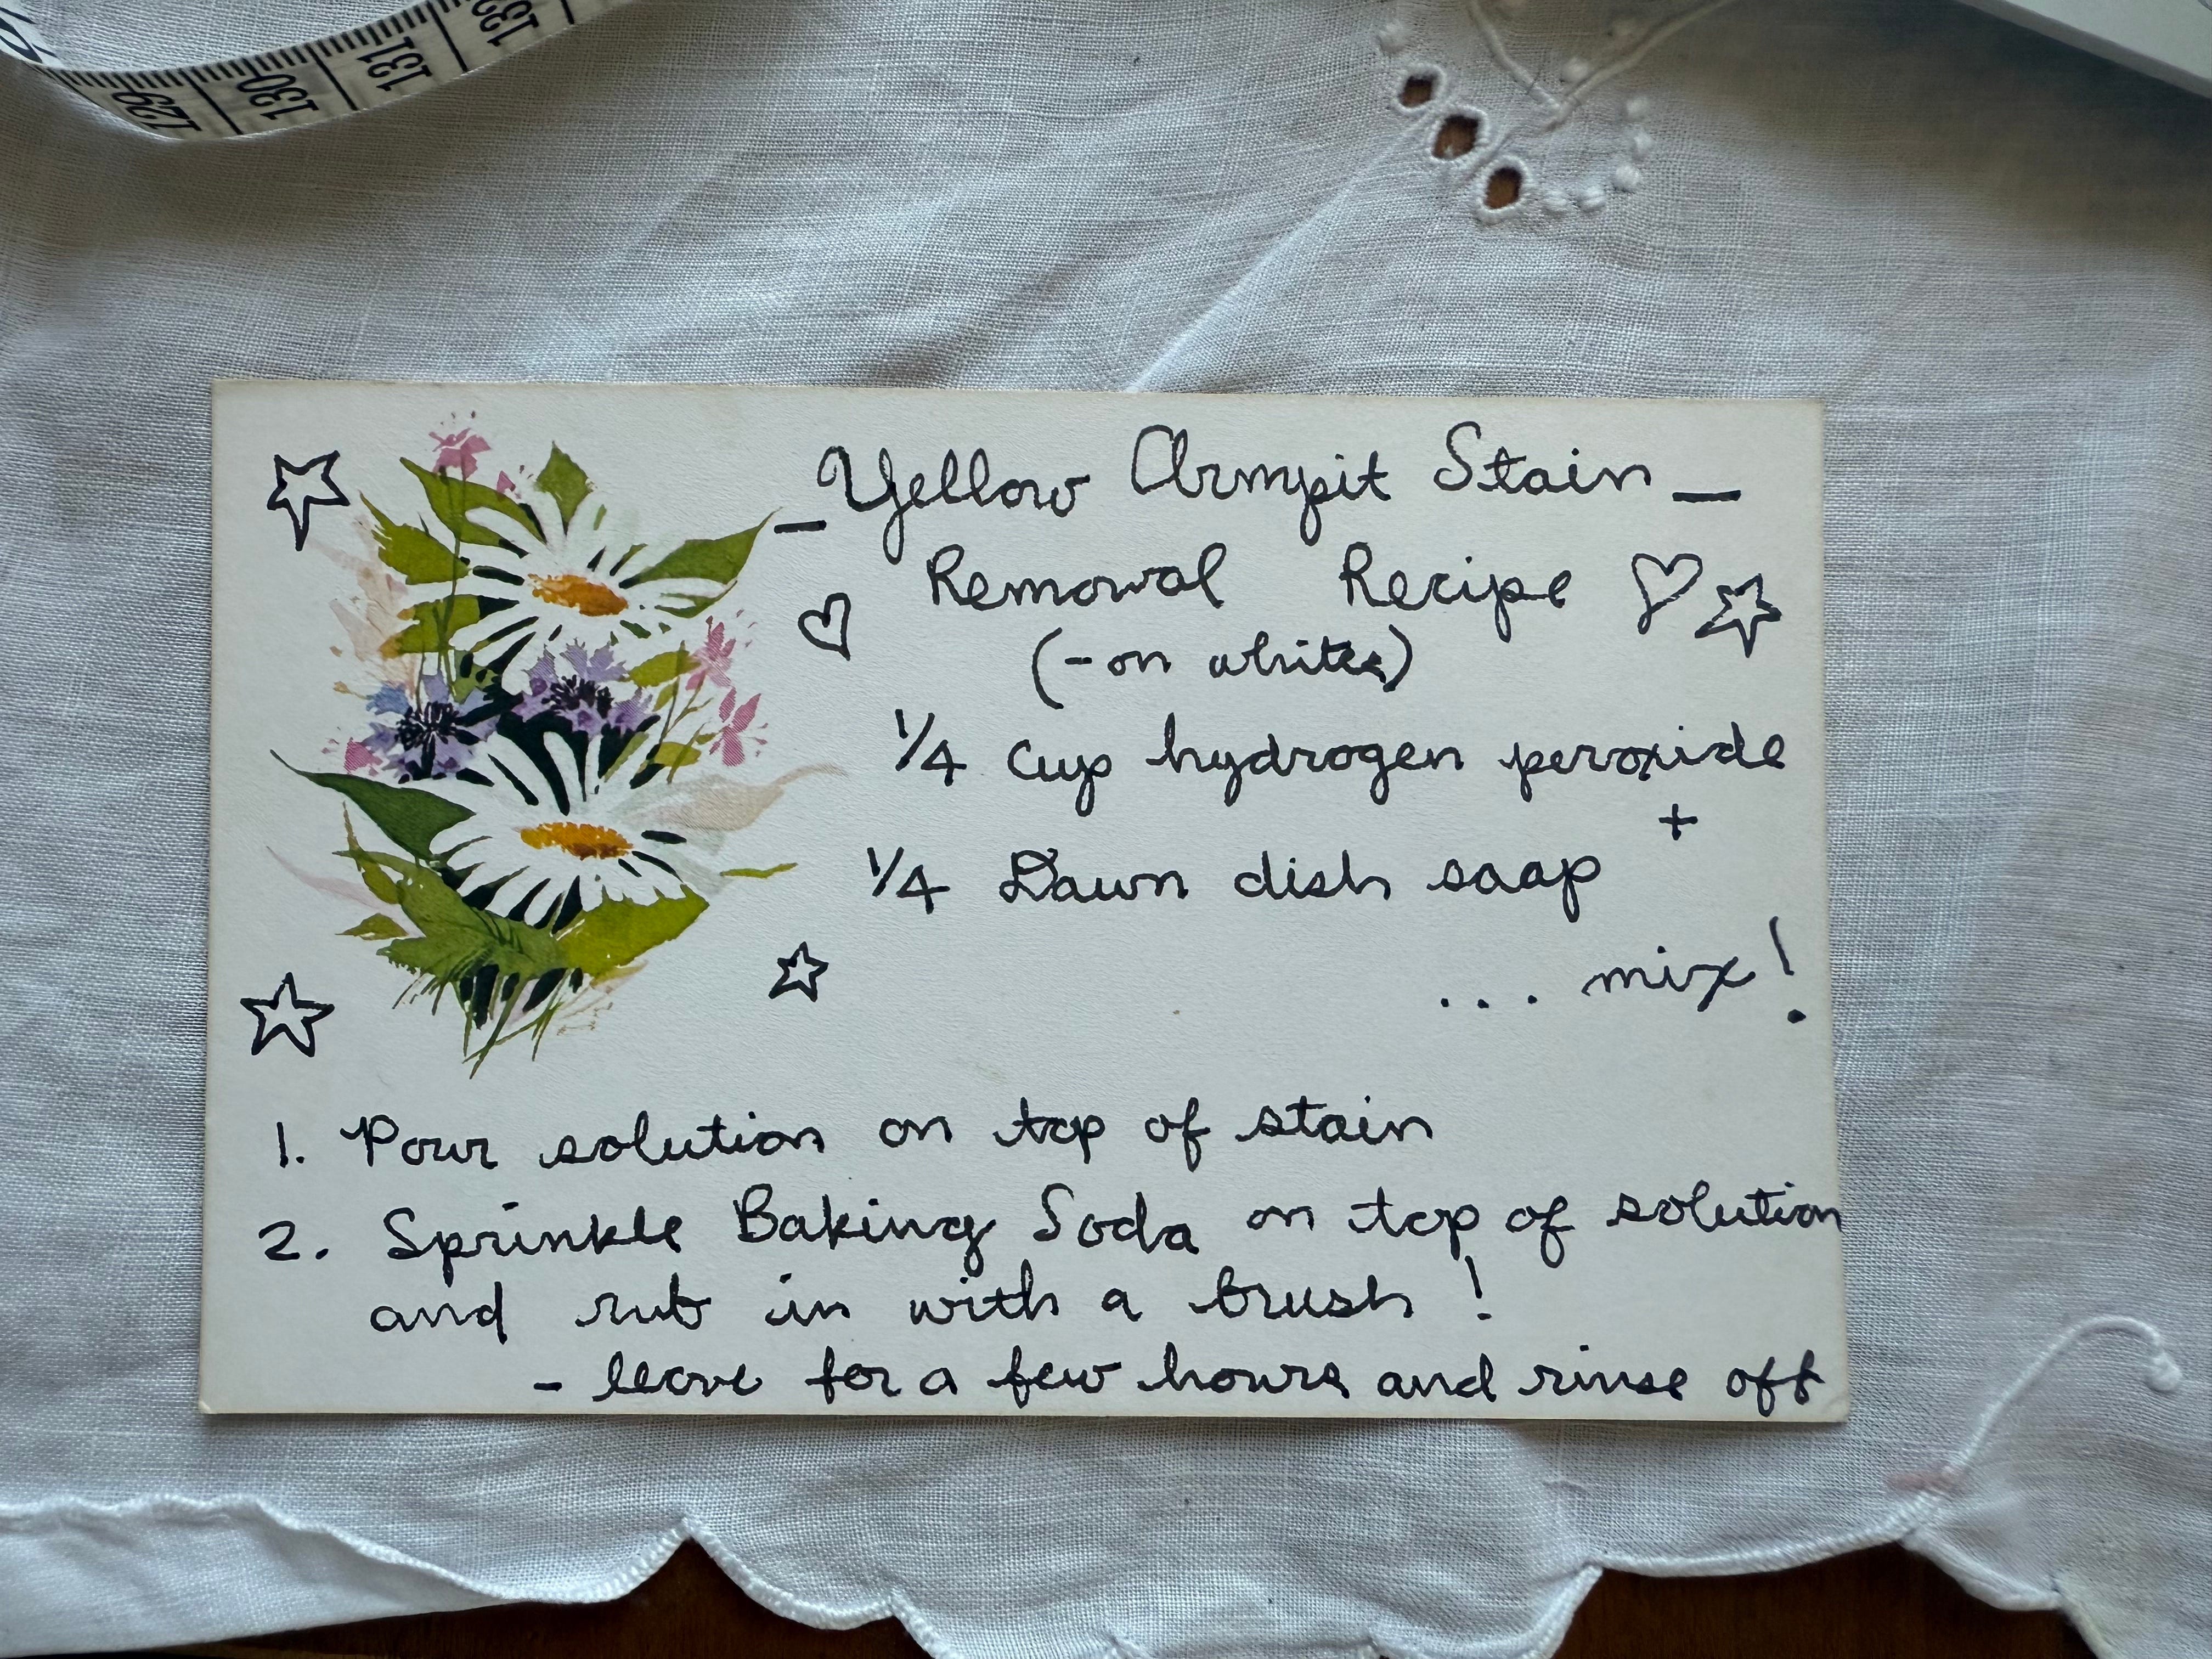 129 130 131 132
Yellow Armpit Stain
Removal Recipe
(-on whites)
1/4 cup hydrogen peroxide
+
1/4 Dawn dish soap
... mix!
1. Pour solution on top of stain
2. Sprinkle Baking Soda on top of solution
and rub in with a brush!
- leave for a few hours and rinse off